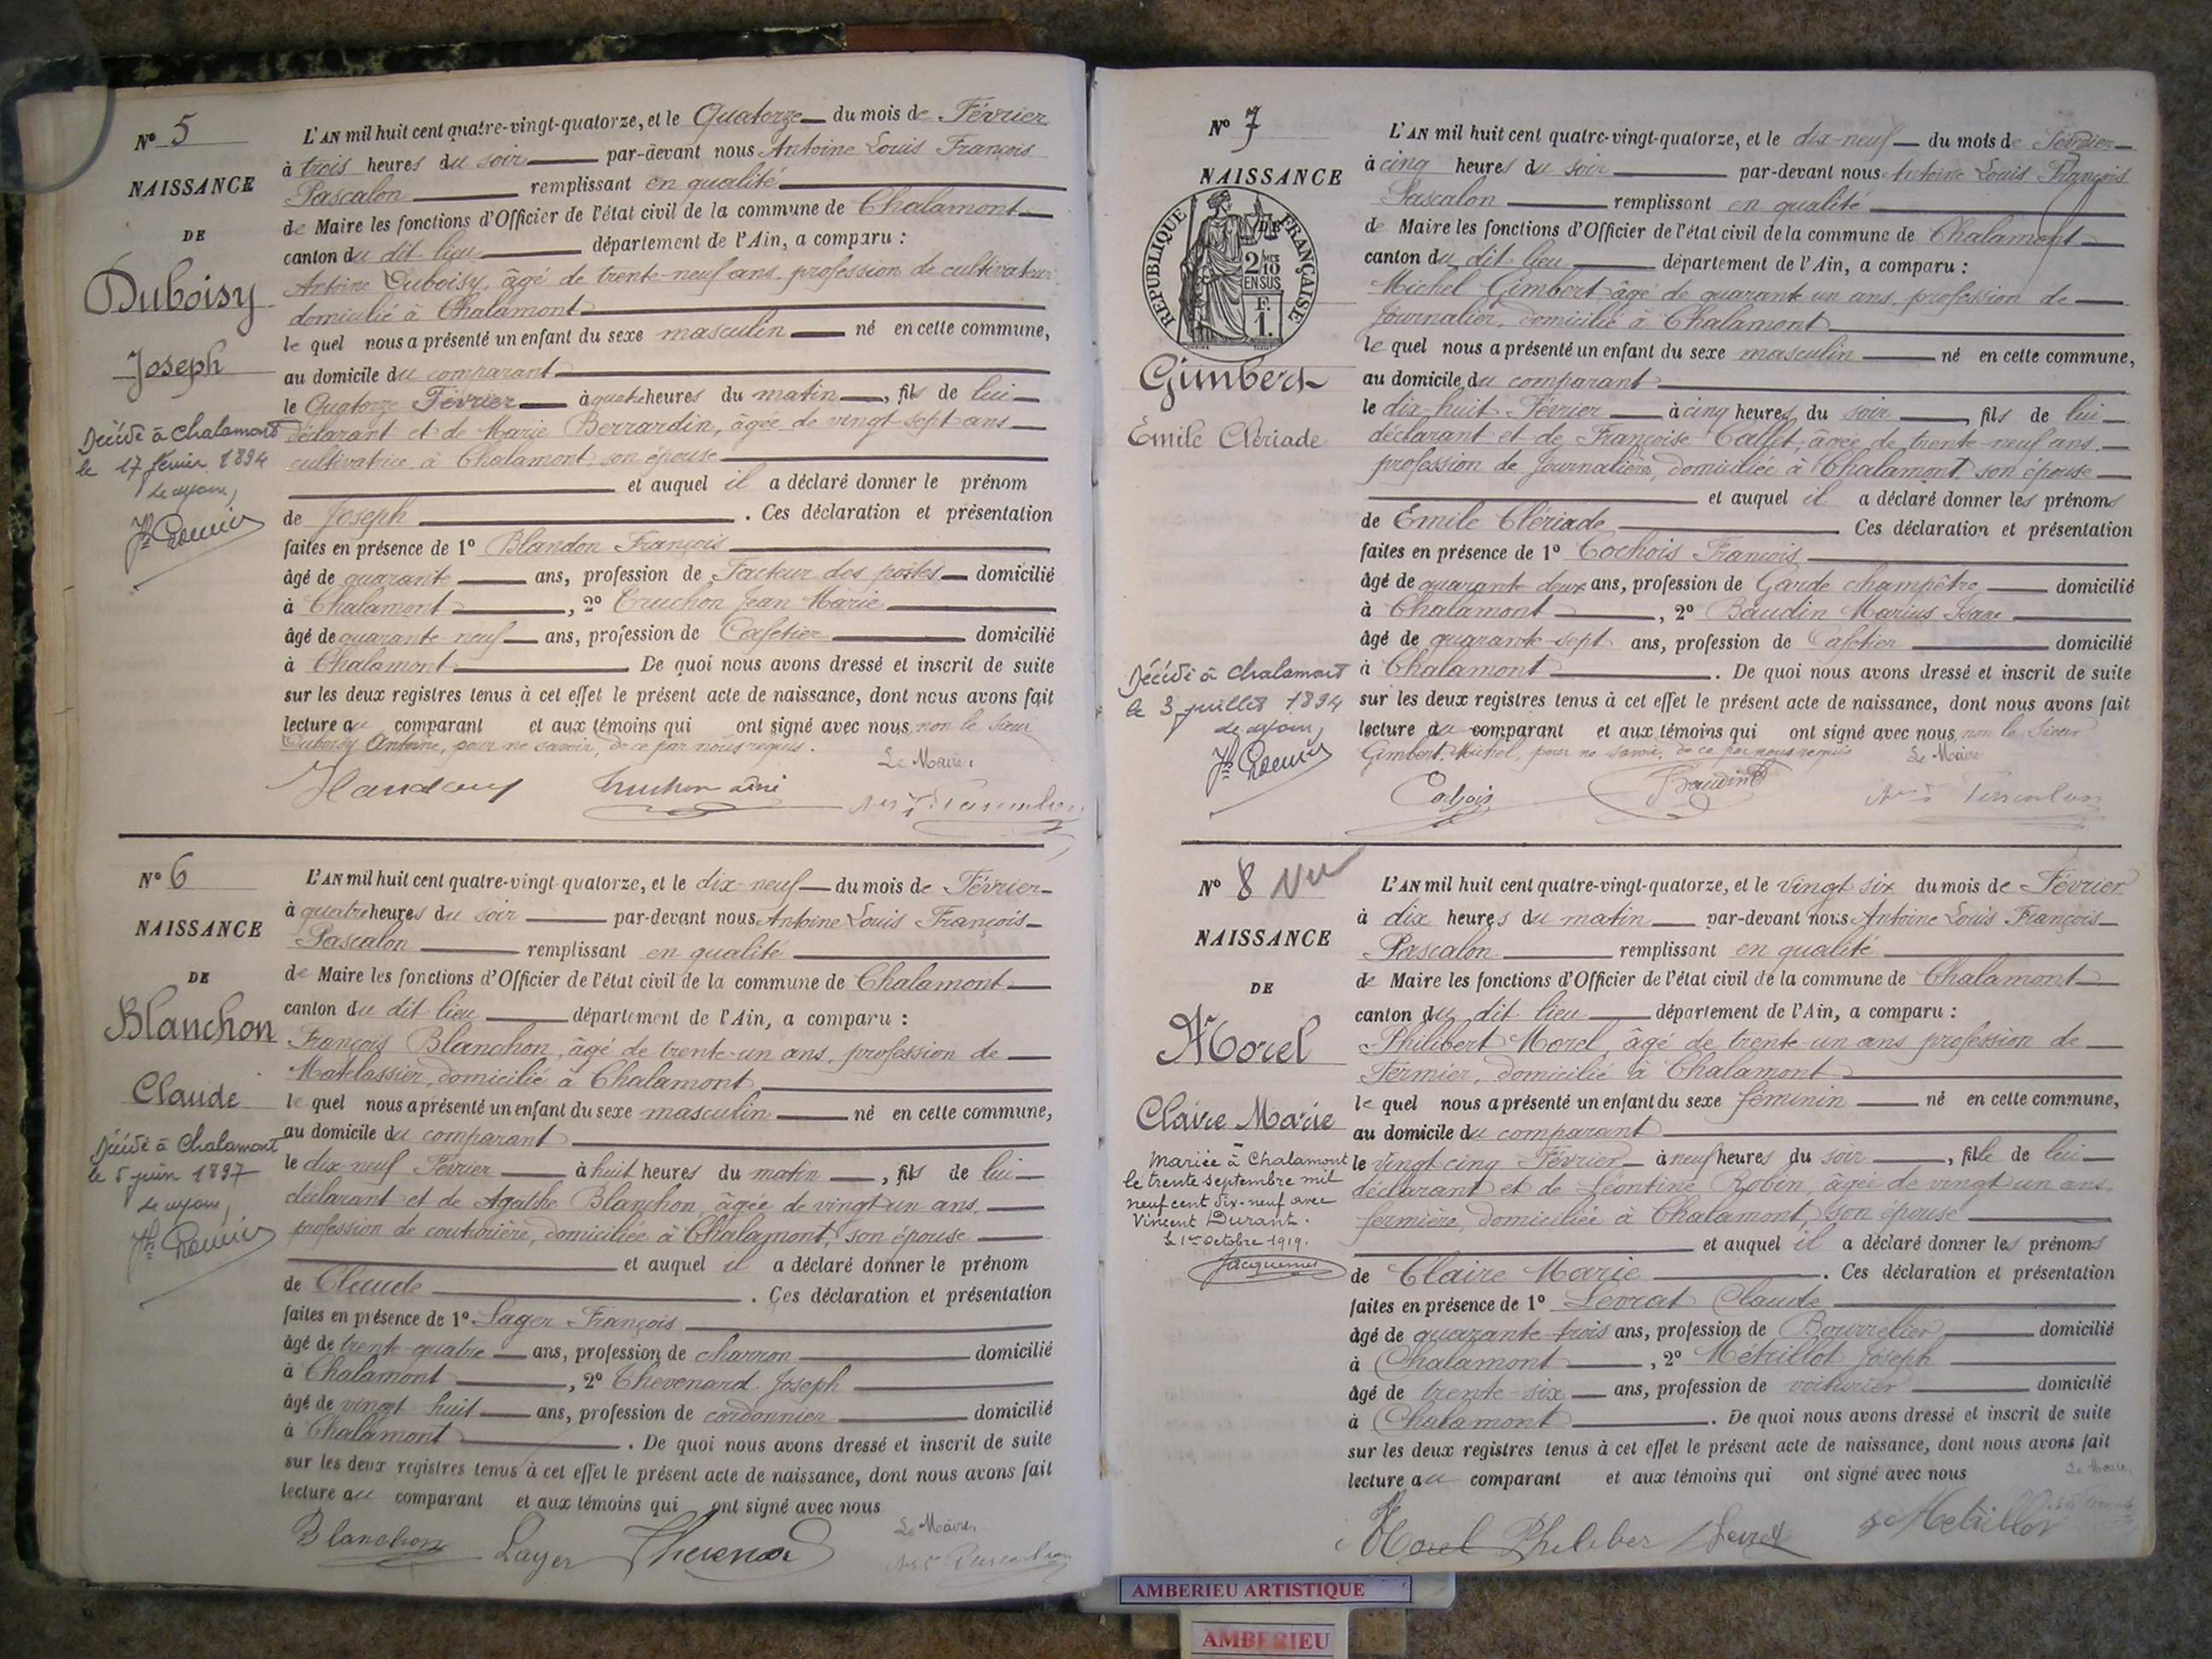 N° 5
NAISSANCE
DE
Duboisy
Joseph
Décédé à Chalamont
le 17 février 1894
L'AN mil huit cent quatre-vingt-quatorze, et le Quatorze du mois de Février
à trois heures du soir par-devant nous Antoine Louis François
Pascalon remplissant en qualité
de Maire les fonctions d'Officier de l'état civil de la commune de Chalamont
canton du dit lieu département de l'Ain, a comparu :
Antoine Duboisy, âgé de trente-neuf ans, profession de cultivateur
domicilié à Chalamont
le quel nous a présenté un enfant du sexe masculin né en cette commune,
au domicile du comparant
le Quatorze Février à quatre heures du matin, fils de lui
déclarant et de Marie Berrardin, âgée de vingt sept ans
cultivatrice à Chalamont son épouse
et auquel il a déclaré donner le prénom
de Joseph. Ces déclaration et présentation
faites en présence de 1° Blandon François
âgé de quarante ans, profession de Facteur des postes domicilié
à Chalamont, 2° Truchon Jean Marie
âgé de quarante neuf ans, profession de Cafetier domicilié
à Chalamont De quoi nous avons dressé et inscrit de suite
sur les deux registres tenus à cet effet le présent acte de naissance, dont nous avons fait
lecture au comparant et aux témoins qui ont signé avec nous, non le sieur
Duboisy Antoine, pour ne savoir, de ce par nous requis.
Le Maire,
Truchon aîné
N° 6
NAISSANCE
DE
Blanchon
Claude
Décédé à Chalamont
le 5 juin 1897
L'AN mil huit cent quatre-vingt-quatorze, et le dix-neuf du mois de Février
à quatre heures du soir par-devant nous Antoine Louis François
Pascalon remplissant en qualité
de Maire les fonctions d'Officier de l'état civil de la commune de Chalamont
canton du dit lieu département de l'Ain, a comparu :
François Blanchon, âgé de trente-un ans, profession de
Matelassier, domicilié à Chalamont
le quel nous a présenté un enfant du sexe masculin né en cette commune,
au domicile du comparant
le dix-neuf Février à huit heures du matin, fils de lui
déclarant et de Agathe Blanchon, âgée de vingt un ans,
profession de couturière, domiciliée à Chalamont, son épouse
et auquel il a déclaré donner le prénom
de Claude. Ces déclaration et présentation
faites en présence de 1° Lager François
âgé de trente-quatre ans, profession de charron domicilié
à Chalamont, 2° Thevenard Joseph
âgé de vingt huit ans, profession de cordonnier domicilié
à Chalamont. De quoi nous avons dressé et inscrit de suite
sur les deux registres tenus à cet effet le présent acte de naissance, dont nous avons fait
lecture au comparant et aux témoins qui ont signé avec nous
Le Maire,
Blanchon Layer
N° 7
NAISSANCE
DE
RÉPUBLIQUE FRANÇAISE
2/10 MES
EN SUS
F.
1.
Gimbert
Emile Clériade
Décédé à Chalamont
le 3 juillet 1894
L'AN mil huit cent quatre-vingt-quatorze, et le dix-neuf du mois de Février
à cinq heures du soir par-devant nous Antoine Louis François
Pascalon remplissant en qualité
de Maire les fonctions d'Officier de l'état civil de la commune de Chalamont
canton du dit lieu département de l'Ain, a comparu :
Michel Gimbert âgé de quarante un ans, profession de
Journalier, domicilié à Chalamont
le quel nous a présenté un enfant du sexe masculin né en cette commune,
au domicile du comparant
le dix-huit Février à cinq heures du soir, fils de lui
déclarant et de Françoise Callet âgée de trente-neuf ans
profession de Journalière, domiciliée à Chalamont, son épouse
et auquel il a déclaré donner les prénoms
de Emile Clériade Ces déclaration et présentation
faites en présence de 1° Cochois François
âgé de quarante deux ans, profession de Garde champêtre domicilié
à Chalamont, 2° Baudin Marius
âgé de quarante-sept ans, profession de Cafetier domicilié
à Chalamont. De quoi nous avons dressé et inscrit de suite
sur les deux registres tenus à cet effet le présent acte de naissance, dont nous avons fait
lecture au comparant et aux témoins qui ont signé avec nous, non le Sieur
Gimbert Michel, pour ne savoir, de ce par nous requis
Le Maire
Baudin
N° 8 Vu
NAISSANCE
DE
Morel
Claire Marie
Mariée à Chalamont
le trente septembre mil
neuf cent dix-neuf avec
Vincent Durant.
le 1er octobre 1919.
L'AN mil huit cent quatre-vingt-quatorze, et le vingt six du mois de Février
à dix heures du matin par-devant nous Antoine Louis François
Pascalon remplissant en qualité
de Maire les fonctions d'Officier de l'état civil de la commune de Chalamont
canton du dit lieu département de l'Ain, a comparu :
Philibert Morel âgé de trente un ans profession de
Fermier, domicilié à Chalamont
le quel nous a présenté un enfant du sexe féminin né en cette commune,
au domicile du comparant
le vingt cinq Février à neuf heures du soir, fille de lui
déclarant et de Léontine Robin, âgée de vingt un ans,
fermière, domiciliée à Chalamont, son épouse
et auquel il a déclaré donner les prénoms
de Claire Marie. Ces déclaration et présentation
faites en présence de 1° Levrat Claude
âgé de quarante-trois ans, profession de Bourrelier domicilié
à Chalamont, 2° Métrillot Joseph
âgé de trente-six ans, profession de voiturier domicilié
à Chalamont. De quoi nous avons dressé et inscrit de suite
sur les deux registres tenus à cet effet le présent acte de naissance, dont nous avons fait
lecture au comparant et aux témoins qui ont signé avec nous
Le Maire,
Morel Philiber
AMBERIEU ARTISTIQUE
AMBERIEU